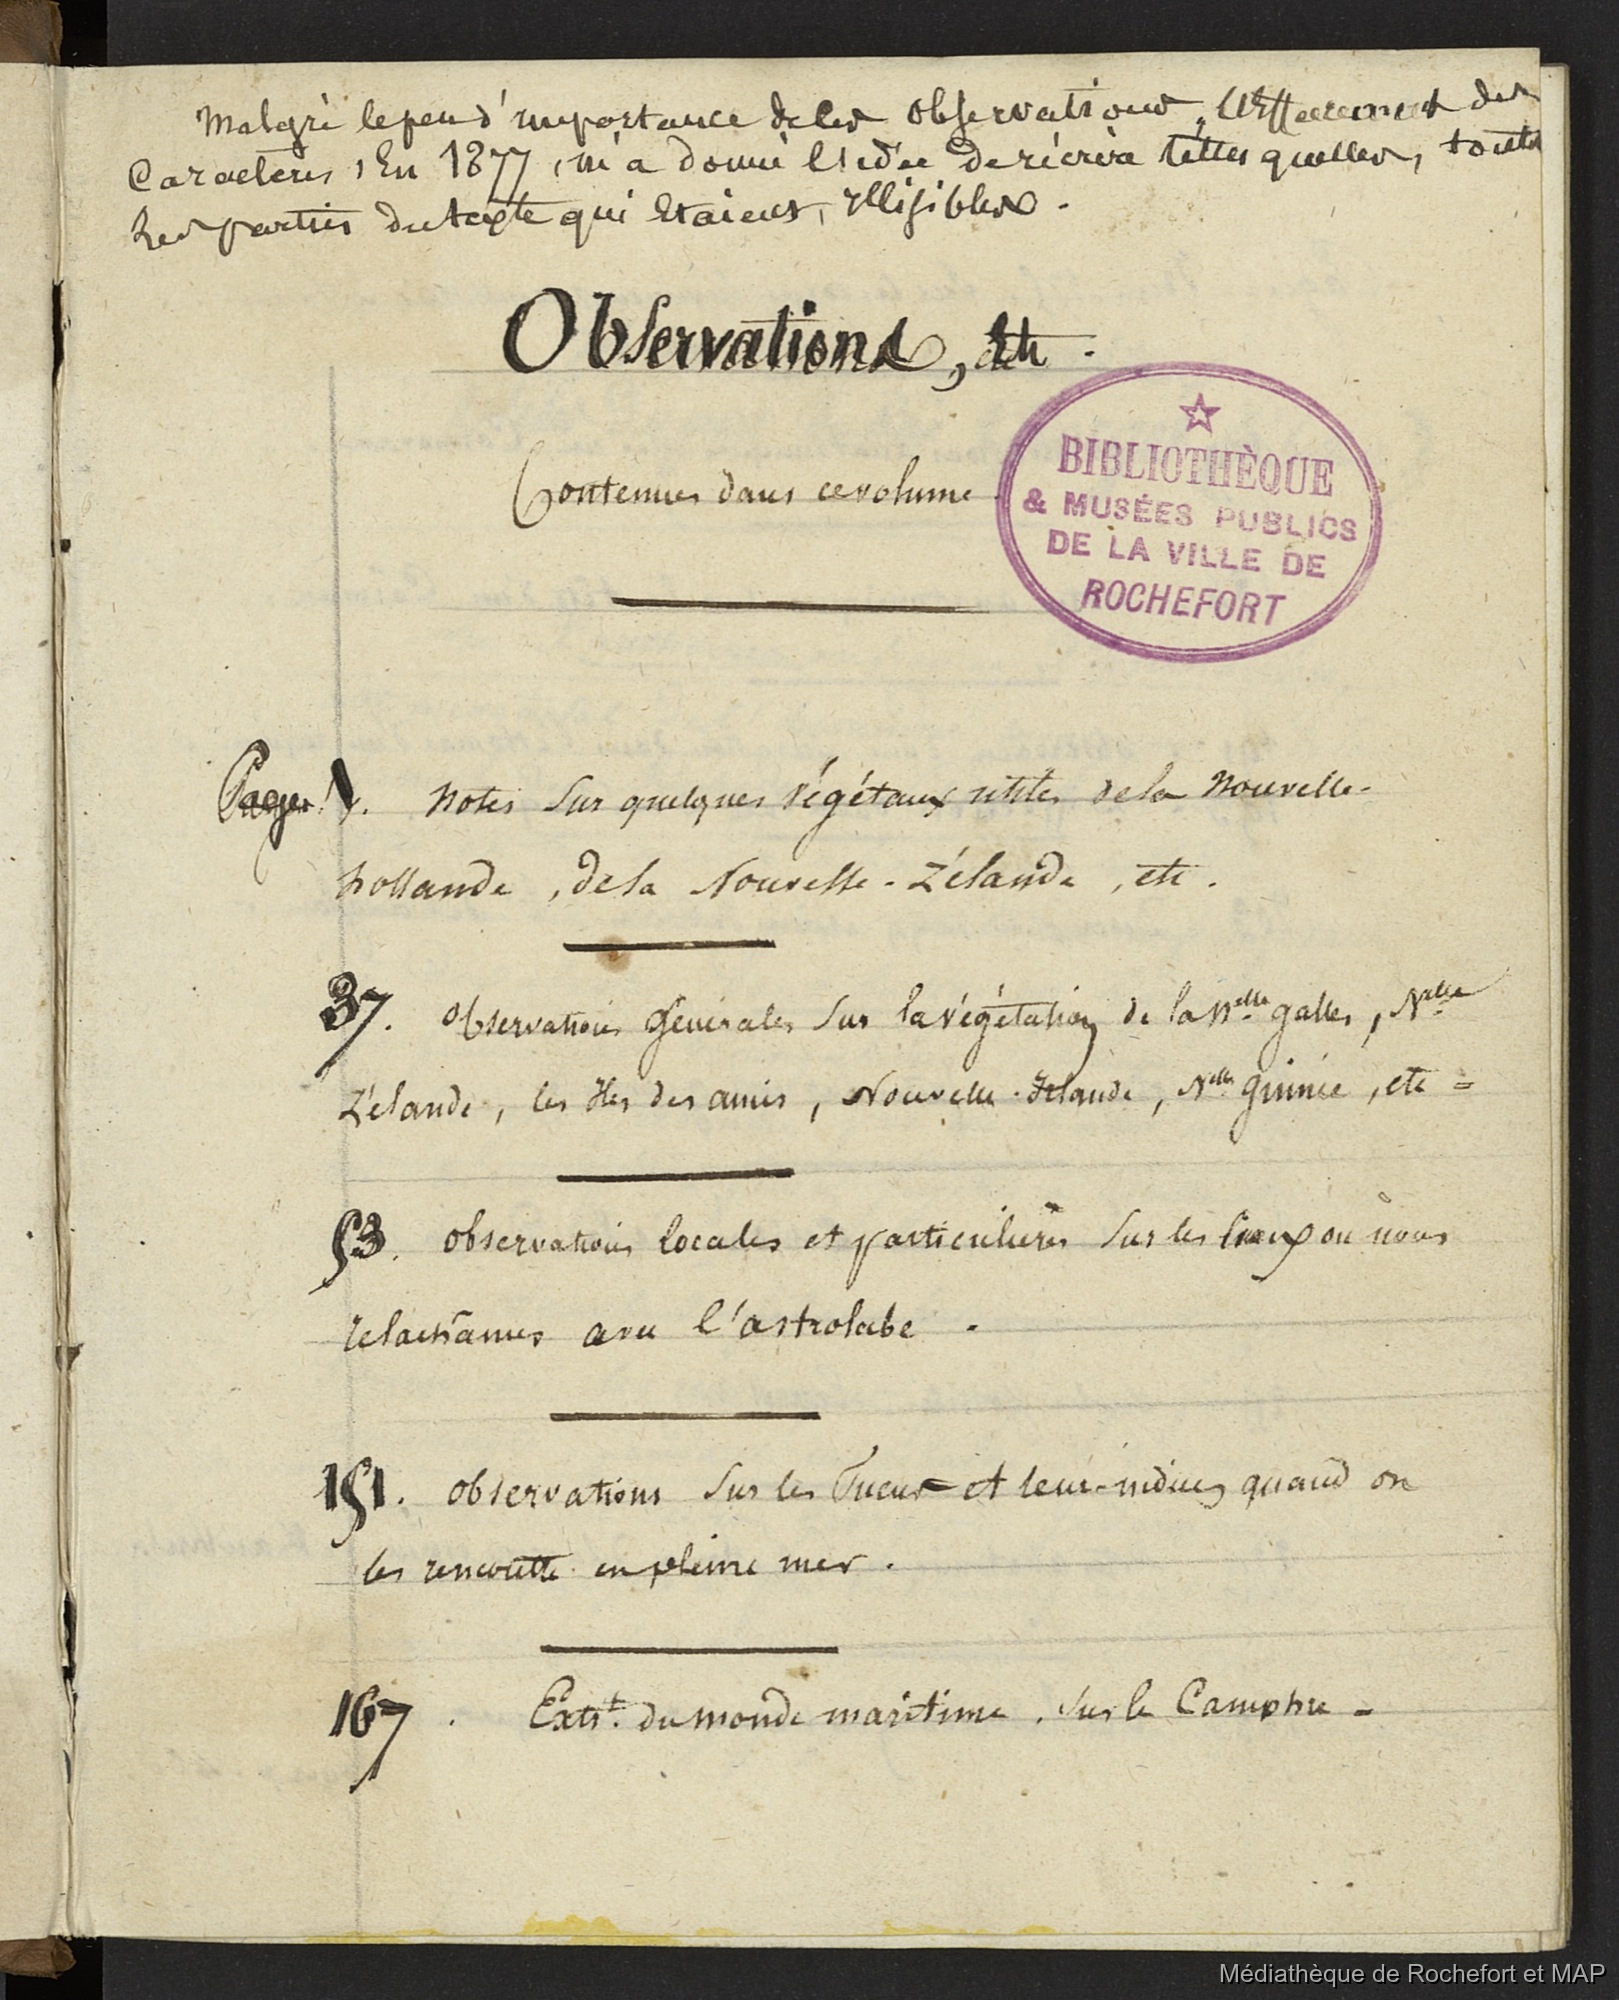 Malgré le peu d'importance de ces observations, l'effacement des
Caracteres, En 1877, m'a donné l'idée de récrire telles quelles, toutes
les parties du texte qui étaient, illisibles.
Observations, etc.
Contenues dans ce volume.
★
BIBLIOTHÈQUE
& MUSÉES PUBLICS
DE LA VILLE DE
ROCHEFORT
Pages 1. Notes sur quelques végétaux utiles de la Nouvelle-
hollande, de la Nouvelle-Zélande, etc.
37. Observations générales sur la végétation de la Nelle galles, Nelle
Zélande, les Iles des amis, Nouvelle-Irlande, Nelle guinée, etc =
53. Observations locales et particulières sur les lieux ou nous
relachames avec l'astrolabe.
151. Observations sur les Fucus et leur indice quand on
les rencontre en pleine mer.
167. Extt. du monde maritime. sur le Camphre =
Médiathèque de Rochefort et MAP